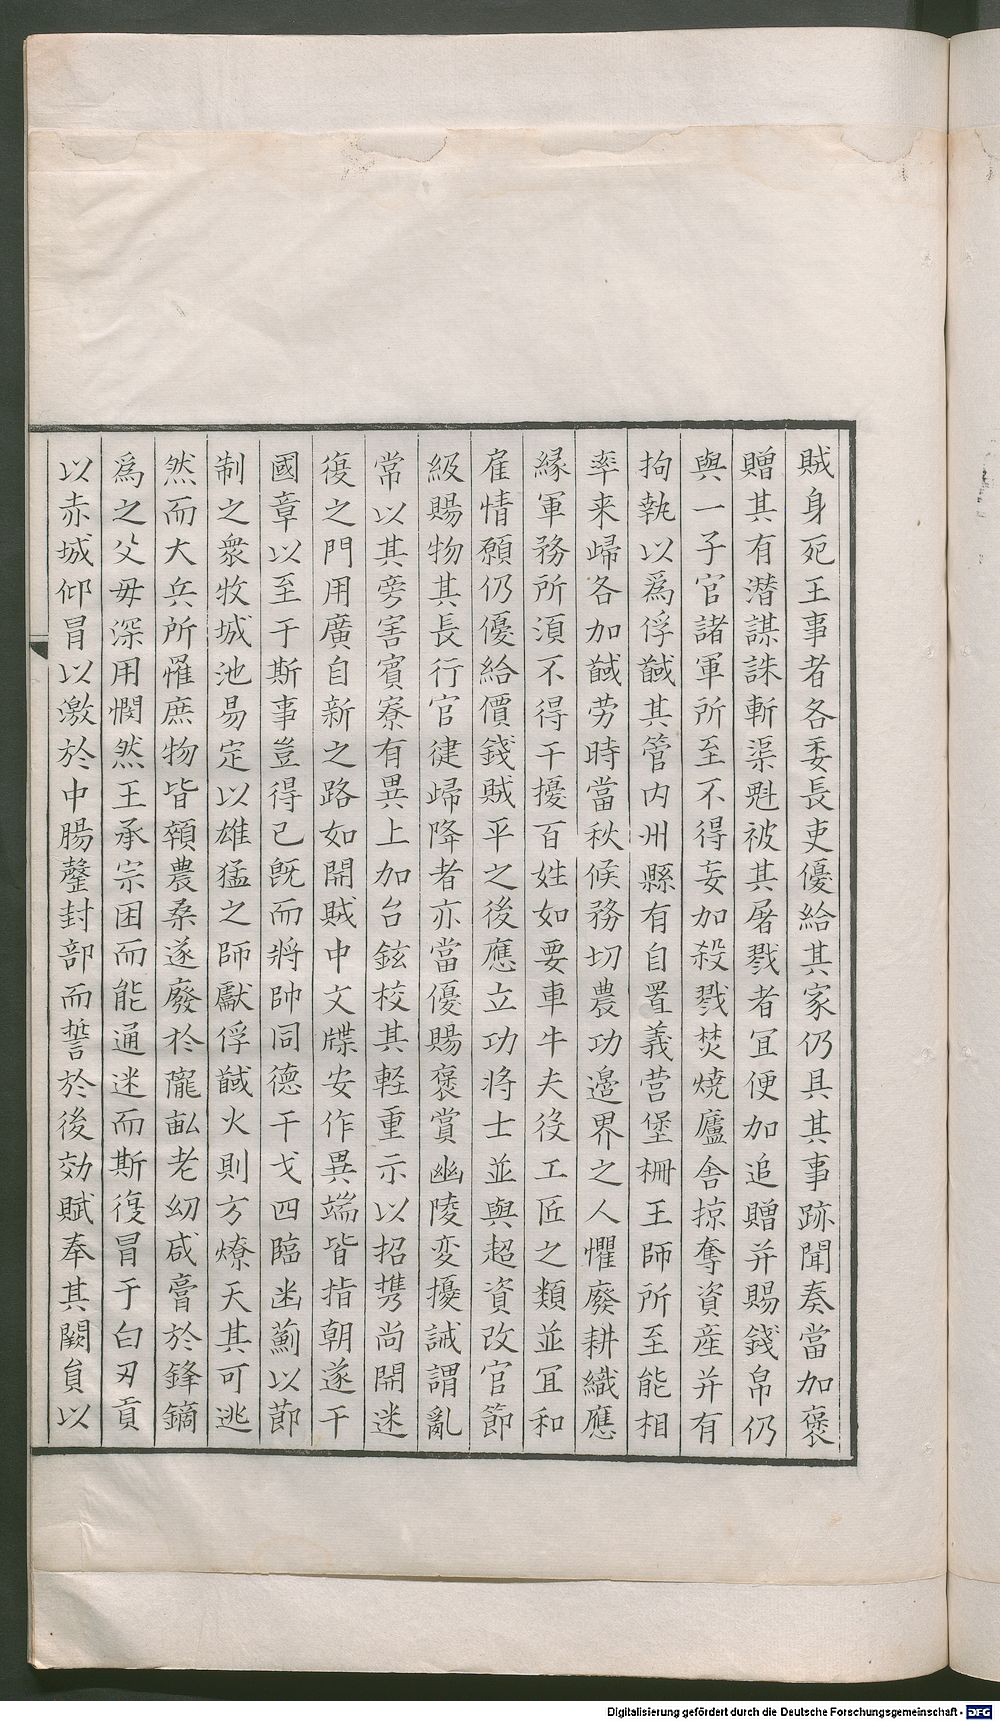 賊身死王事者各委長吏優給其家仍具其事跡聞奏當加褒
贈其有潛謀誅斬渠魁被其屠戮者冝便加追贈并賜錢帛仍
與一子官諸軍所至不得妄加殺戮焚燒廬舍掠奪資産并有
拘執以爲俘馘其管内州縣有自置義营堡柵王師所至能相
率来歸各加馘劳時當秋候務切農功邊界之人懼廢耕織應
緣軍務所湏不得干擾百姓如要車牛夫役工匠之類並冝和
雇情願仍優給價錢賊平之後應立功将士並與超資改官節
級賜物其長行官徤歸降者亦當優賜褒賞幽陵変擾誡謂亂
常以其旁害賓寮有異上加台鉉校其軽重示以招携尚開迷
復之門用廣自新之路如開賊中文牒安作異端皆指朝遂干
國章以至于斯事豈得已既而將帥同德干戈四臨幽薊以節
制之衆牧城池易定以雄猛之師獻俘馘火則方燎天其可逃
然而大兵所罹庶物皆顇農桑遂廢扵隴畆老㓜咸膏於鋒鏑
爲之父毋深用憫然王承宗困而能通迷而斯復冒于白刃貢
以赤城仰冐以激於中腸罄封部而誓於後効賦奉其闕貟以
Digitalisierung gefördert durch die Deutsche Forschungsgemeinschaft - DFG